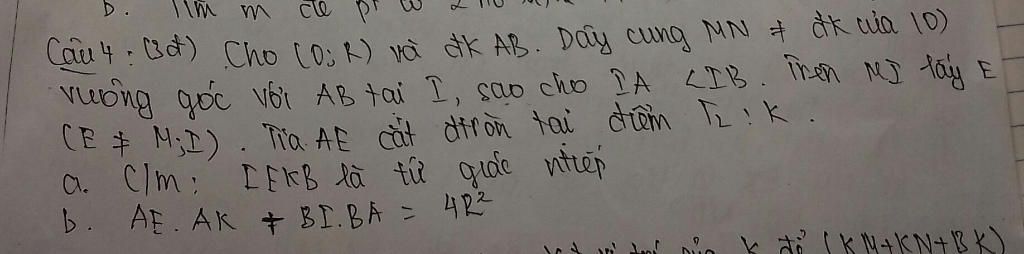 b. Tìm m để pt có 2 no
Câu 4: (3đ) Cho (O; R) và đk AB. Dây cung MN ≠ đk của (O)
vuông góc với AB tại I, sao cho IA < IB. Trên MI lấy E
(E ≠ M; I). Tia AE cắt đtròn tại điểm T2: K.
a. C/m: IEKB là tứ giác ntiếp
b. AE. AK + BI.BA = 4R²
K để (KM+KN+BK)